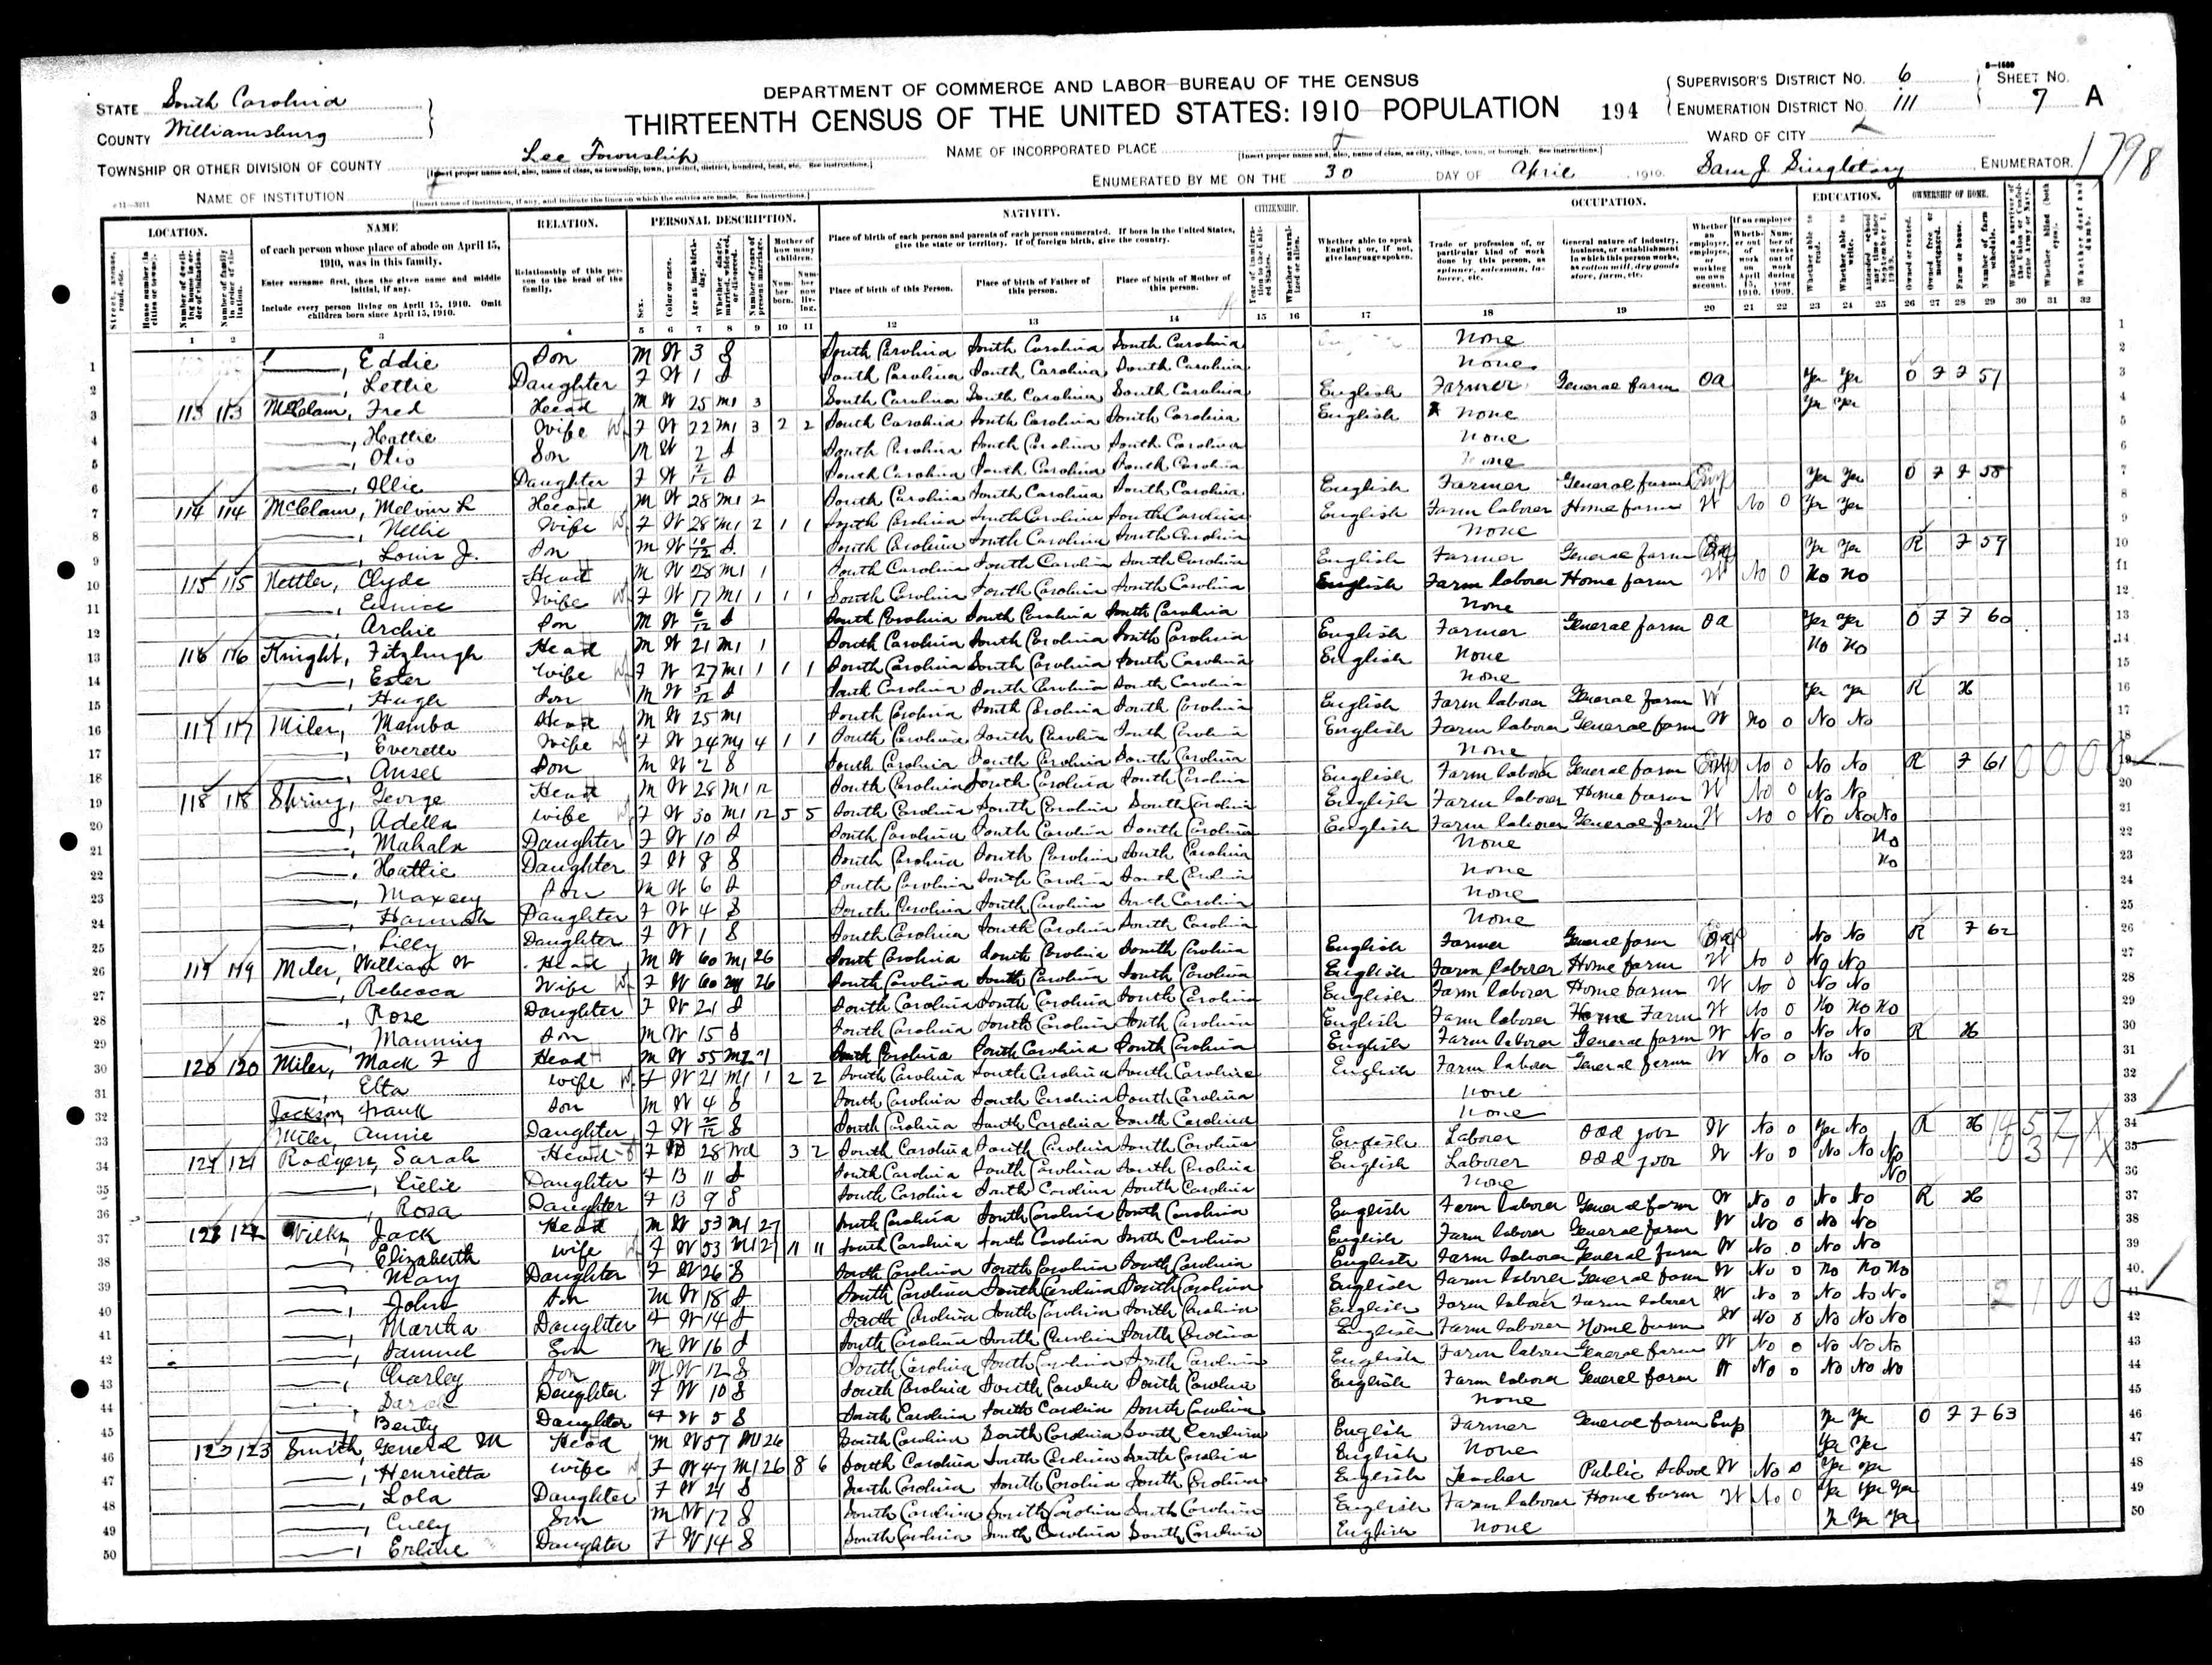 DEPARTMENT OF COMMERCE AND LABOR—BUREAU OF THE CENSUS
THIRTEENTH CENSUS OF THE UNITED STATES: 1910—POPULATION 194
STATE South Carolina
COUNTY Williamsburg
TOWNSHIP OR OTHER DIVISION OF COUNTY Lee Township
NAME OF INSTITUTION
NAME OF INCORPORATED PLACE
ENUMERATED BY ME ON THE 30 DAY OF April, 1910. Sam J. Singletary, ENUMERATOR.
SUPERVISOR'S DISTRICT NO. 6
ENUMERATION DISTRICT NO. 111
SHEET NO. 7 A
WARD OF CITY
1798
LOCATION. NAME RELATION. PERSONAL DESCRIPTION. NATIVITY. CITIZENSHIP. OCCUPATION. EDUCATION. OWNERSHIP OF HOME.
of each person whose place of abode on April 15, 1910, was in this family.
Enter surname first, then the given name and middle initial, if any.
Include every person living on April 15, 1910. Omit children born since April 15, 1910.
Relationship of this person to the head of the family.
Place of birth of each person and parents of each person enumerated. If born in the United States, give the state or territory. If of foreign birth, give the country.
Place of birth of this Person. Place of birth of Father of this person. Place of birth of Mother of this person.
1 Eddie Son M W 3 S South Carolina South Carolina South Carolina None
2 Lettie Daughter F W 1 S South Carolina South Carolina South Carolina None
3 113 113 McClam, Fred Head M W 25 M1 3 South Carolina South Carolina South Carolina English Farmer General farm OA Yes Yes O F F 57
4 Hattie Wife F W 22 M1 3 2 2 South Carolina South Carolina South Carolina English None Yes Yes
5 Olio Son M W 2 S South Carolina South Carolina South Carolina None
6 Illie Daughter F W 2/12 S South Carolina South Carolina South Carolina None
7 114 114 McClam, Melvin L Head M W 28 M1 2 South Carolina South Carolina South Carolina English Farmer General farm Emp Yes Yes O F F 58
8 Nellie Wife F W 28 M1 2 1 1 South Carolina South Carolina South Carolina English Farm laborer Home farm W No 0 Yes Yes
9 Louis J. Son M W 10/12 S South Carolina South Carolina South Carolina None
10 115 115 Nettler, Clyde Head M W 28 M1 1 South Carolina South Carolina South Carolina English Farmer General farm Yes Yes R F 59
11 Eunice Wife F W 17 M1 1 1 1 South Carolina South Carolina South Carolina English Farm laborer Home farm W No 0 No No
12 Archie Son M W 6/12 S South Carolina South Carolina South Carolina None
13 116 116 Knight, Fitzhugh Head M W 21 M1 1 South Carolina South Carolina South Carolina English Farmer General farm OA Yes Yes O F F 60
14 Ester Wife F W 27 M1 1 1 1 South Carolina South Carolina South Carolina English None No No
15 Hugh Son M W 3/12 S South Carolina South Carolina South Carolina None
16 117 117 Miler, Mamba Head M W 25 M1 South Carolina South Carolina South Carolina English Farm laborer General farm W Yes Yes R H
17 Everette Wife F W 24 M1 4 1 1 South Carolina South Carolina South Carolina English Farm laborer General farm W No 0 No No
18 Ansel Son M W 2 S South Carolina South Carolina South Carolina None
19 118 118 Spring, George Head M W 28 M1 12 South Carolina South Carolina South Carolina English Farm laborer General farm No 0 No No R F 61 0 0 0 0
20 Adella Wife F W 30 M1 12 5 5 South Carolina South Carolina South Carolina English Farm laborer Home farm W No 0 No No
21 Mahala Daughter F W 10 S South Carolina South Carolina South Carolina English Farm laborer General farm W No 0 No No No
22 Hattie Daughter F W 8 S South Carolina South Carolina South Carolina None No
23 Maxcey Son M W 6 S South Carolina South Carolina South Carolina None No
24 Hannah Daughter F W 4 S South Carolina South Carolina South Carolina None
25 Lilly Daughter F W 1 S South Carolina South Carolina South Carolina None
26 119 119 Miler, William W Head M W 60 M1 26 South Carolina South Carolina South Carolina English Farmer General farm No No R F 62
27 Rebecca Wife F W 60 M1 26 South Carolina South Carolina South Carolina English Farm laborer Home farm W No 0 No No
28 Rose Daughter F W 21 S South Carolina South Carolina South Carolina English Farm laborer Home farm W No 0 No No
29 Manning Son M W 15 S South Carolina South Carolina South Carolina English Farm laborer Home Farm W No 0 No No No
30 120 120 Miler, Mack F Head M W 55 M2 1 South Carolina South Carolina South Carolina English Farm laborer General farm W No 0 No No R H
31 Elta Wife F W 21 M1 1 2 2 South Carolina South Carolina South Carolina English Farm laborer General farm W No 0 No No
32 Jackson, Frank Son M W 4 S South Carolina South Carolina South Carolina None
33 Miler, Annie Daughter F W 2/12 S South Carolina South Carolina South Carolina None
34 121 121 Rodgers, Sarah Head F B 28 Wd 3 2 South Carolina South Carolina South Carolina English Laborer Odd jobs W No 0 Yes No R H
35 Lielie Daughter F B 11 S South Carolina South Carolina South Carolina English Laborer Odd jobs W No 0 No No No
36 Rosa Daughter F B 9 S South Carolina South Carolina South Carolina None No
37 122 122 Wilks, Jack Head M W 53 M1 27 South Carolina South Carolina South Carolina English Farm laborer General farm W No 0 No No R H
38 Elizabeth Wife F W 53 M1 27 11 11 South Carolina South Carolina South Carolina English Farm laborer General farm W No 0 No No
39 Mary Daughter F W 26 S South Carolina South Carolina South Carolina English Farm laborer General farm W No 0 No No
40 John Son M W 18 S South Carolina South Carolina South Carolina English Farm laborer General farm W No 0 No No No
41 Martha Daughter F W 14 S South Carolina South Carolina South Carolina English Farm laborer Farm laborer W No 0 No No No 2 1 0 0
42 Samuel Son M W 16 S South Carolina South Carolina South Carolina English Farm laborer Home farm W No 0 No No No
43 Charley Son M W 12 S South Carolina South Carolina South Carolina English Farm laborer General farm W No 0 No No No
44 Daughter F W 10 S South Carolina South Carolina South Carolina English Farm laborer General farm W No 0 No No No
45 Benty Daughter F W 5 S South Carolina South Carolina South Carolina None
46 123 123 Smith, General M Head M W 57 M1 26 South Carolina South Carolina South Carolina English Farmer General farm Emp Yes Yes O F F 63
47 Henrietta Wife F W 47 M1 26 8 6 South Carolina South Carolina South Carolina English None Yes Yes
48 Lola Daughter F W 21 S South Carolina South Carolina South Carolina English Teacher Public School W No 0 Yes Yes
49 Cully Son M W 17 S South Carolina South Carolina South Carolina English Farm laborer Home farm W No 0 Yes Yes Yes
50 Erline Daughter F W 14 S South Carolina South Carolina South Carolina English None Yes Yes Yes